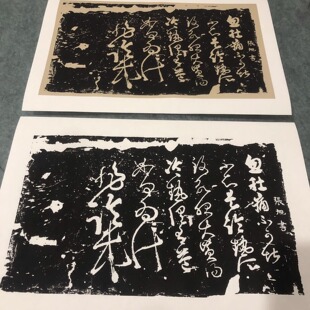 張旭書
忽肚痛不可堪
不知是冷熱所
致欲服大黃湯
冷熱俱有益
如何為計
張旭書
忽肚痛不可堪
不知是冷熱所
致欲服大黃湯
冷熱俱有益
如何為計